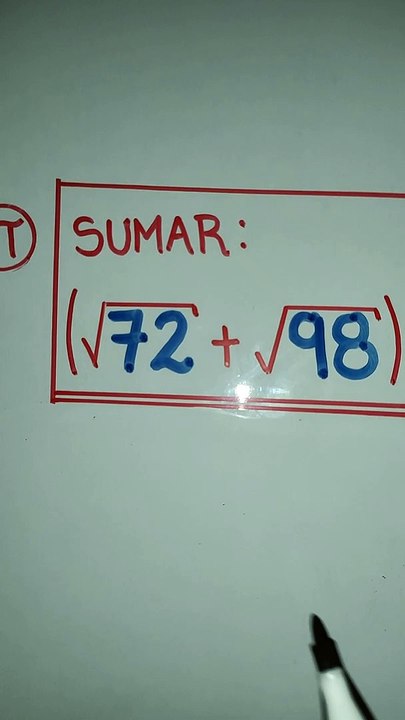 T
SUMAR:
(√72 + √98)